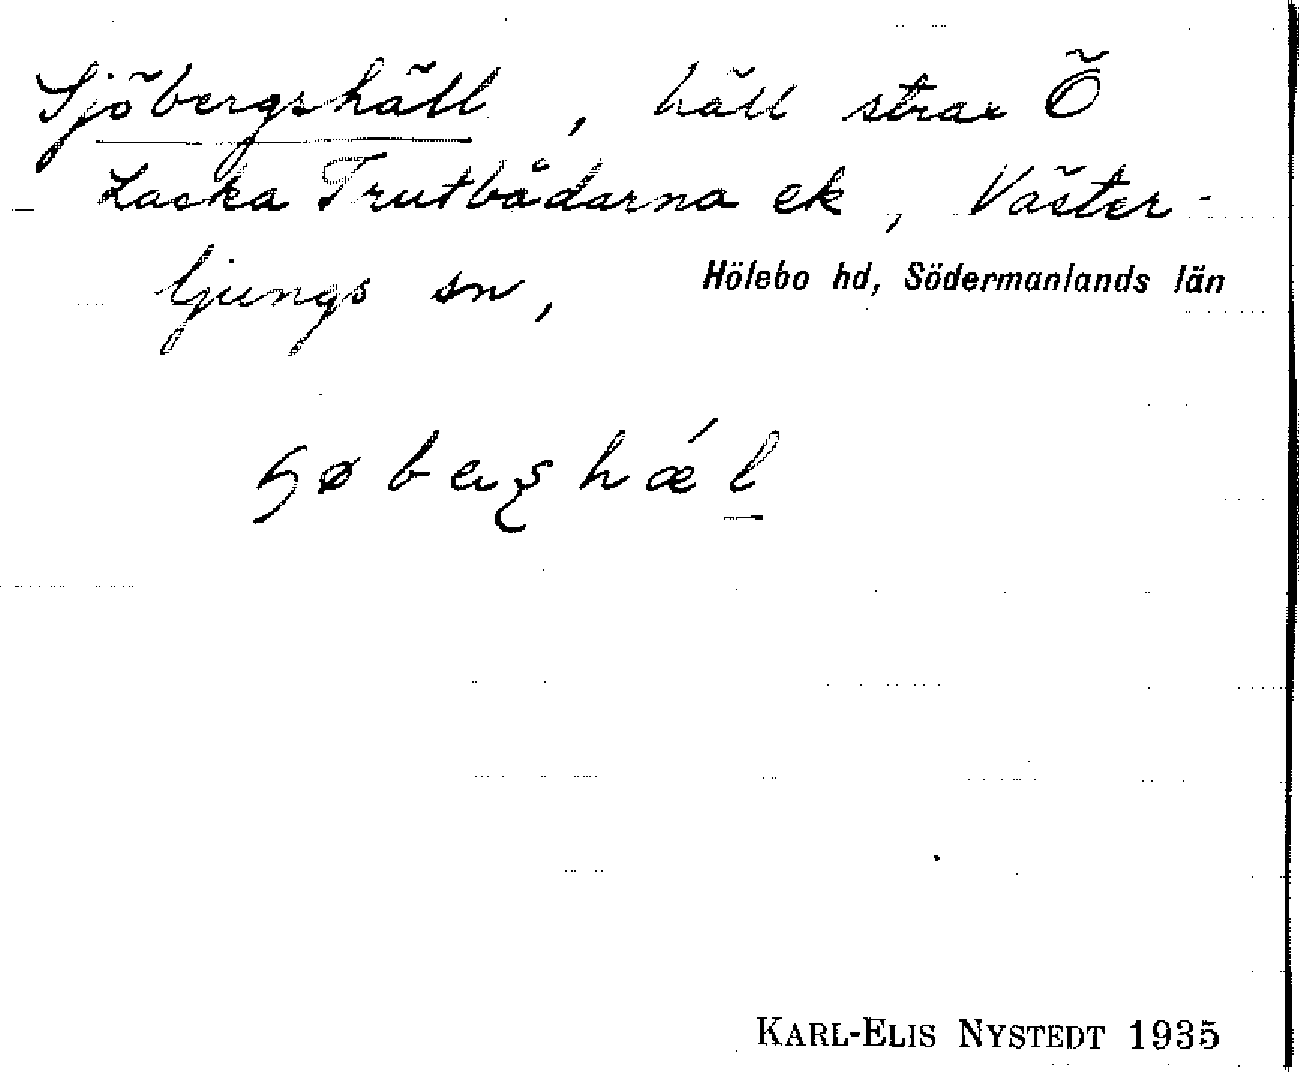 Sjöbergshäll, häll strax Ö
Lacka Trutbådarna ek, Väster-
ljungs sn, Hölebo hd, Södermanlands län
KARL-ELIS NYSTEDT 1935